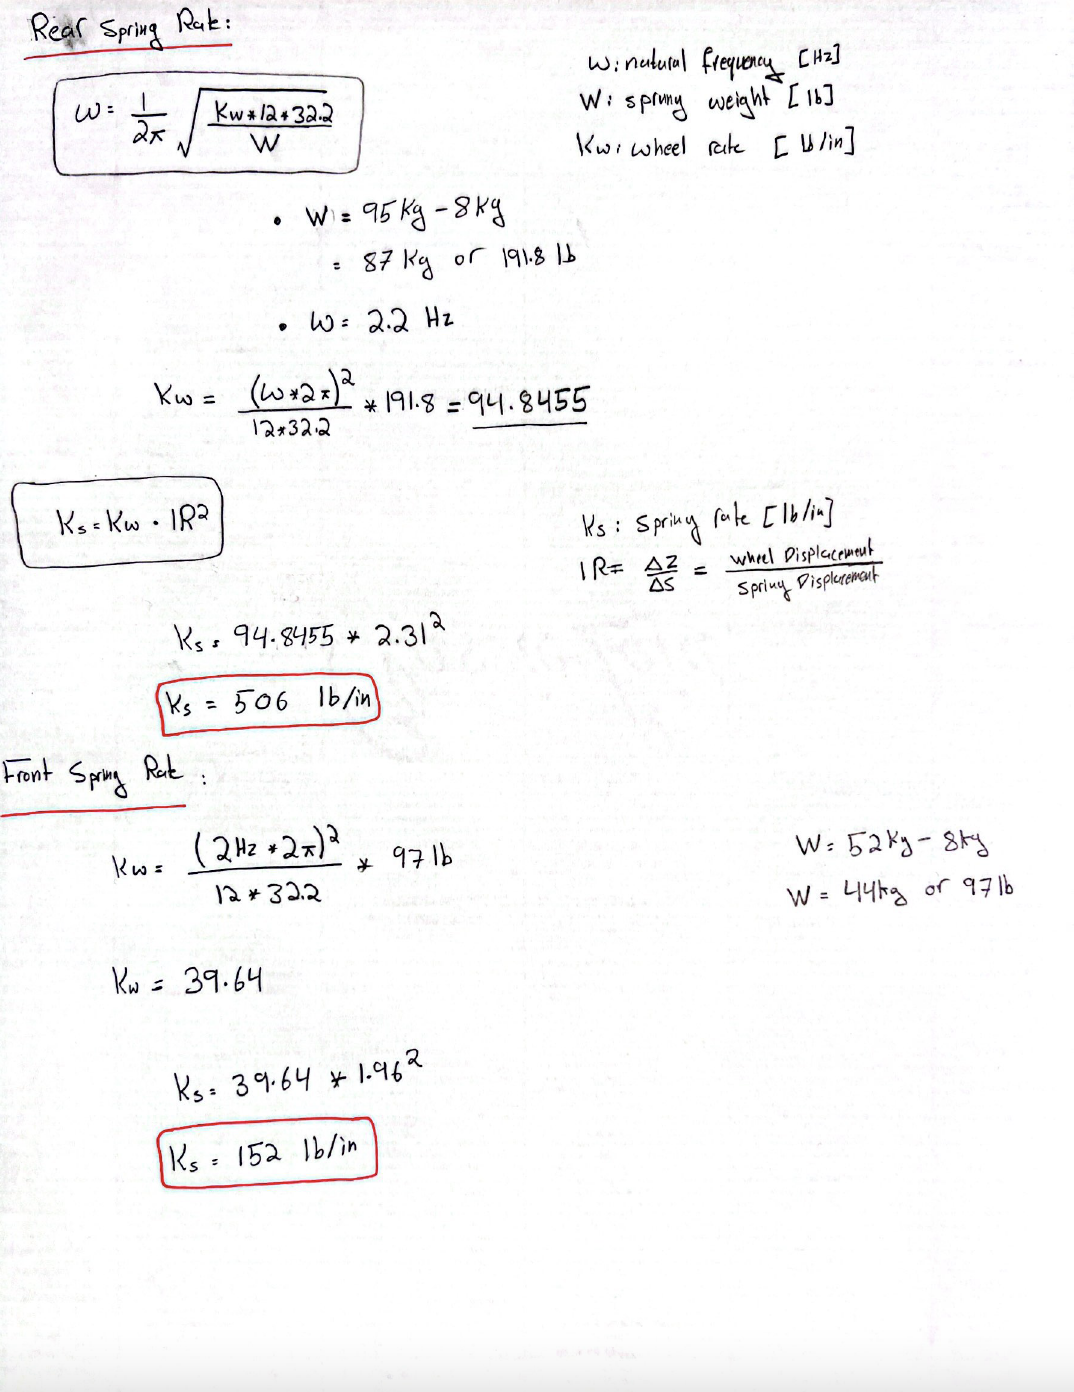 Rear Spring Rate:
ω = 1/2π √(Kw*12*32.2 / W)
ω: natural frequency [Hz]
W: sprung weight [lb]
Kw: wheel rate [lb/in]
• W = 95 Kg - 8 Kg
= 87 Kg or 191.8 lb
• ω = 2.2 Hz
Kw = (ω*2π)² / 12*32.2 * 191.8 = 94.8455
Ks = Kw · IR²
Ks: Spring rate [lb/in]
IR = ΔZ/ΔS = wheel Displacement / Spring Displacement
Ks = 94.8455 * 2.31²
Ks = 506 lb/in
Front Spring Rate:
Kw = (2Hz*2π)² / 12*32.2 * 97 lb
W = 52Kg - 8Kg
W = 44kg or 97 lb
Kw = 39.64
Ks = 39.64 * 1.96²
Ks = 152 lb/in